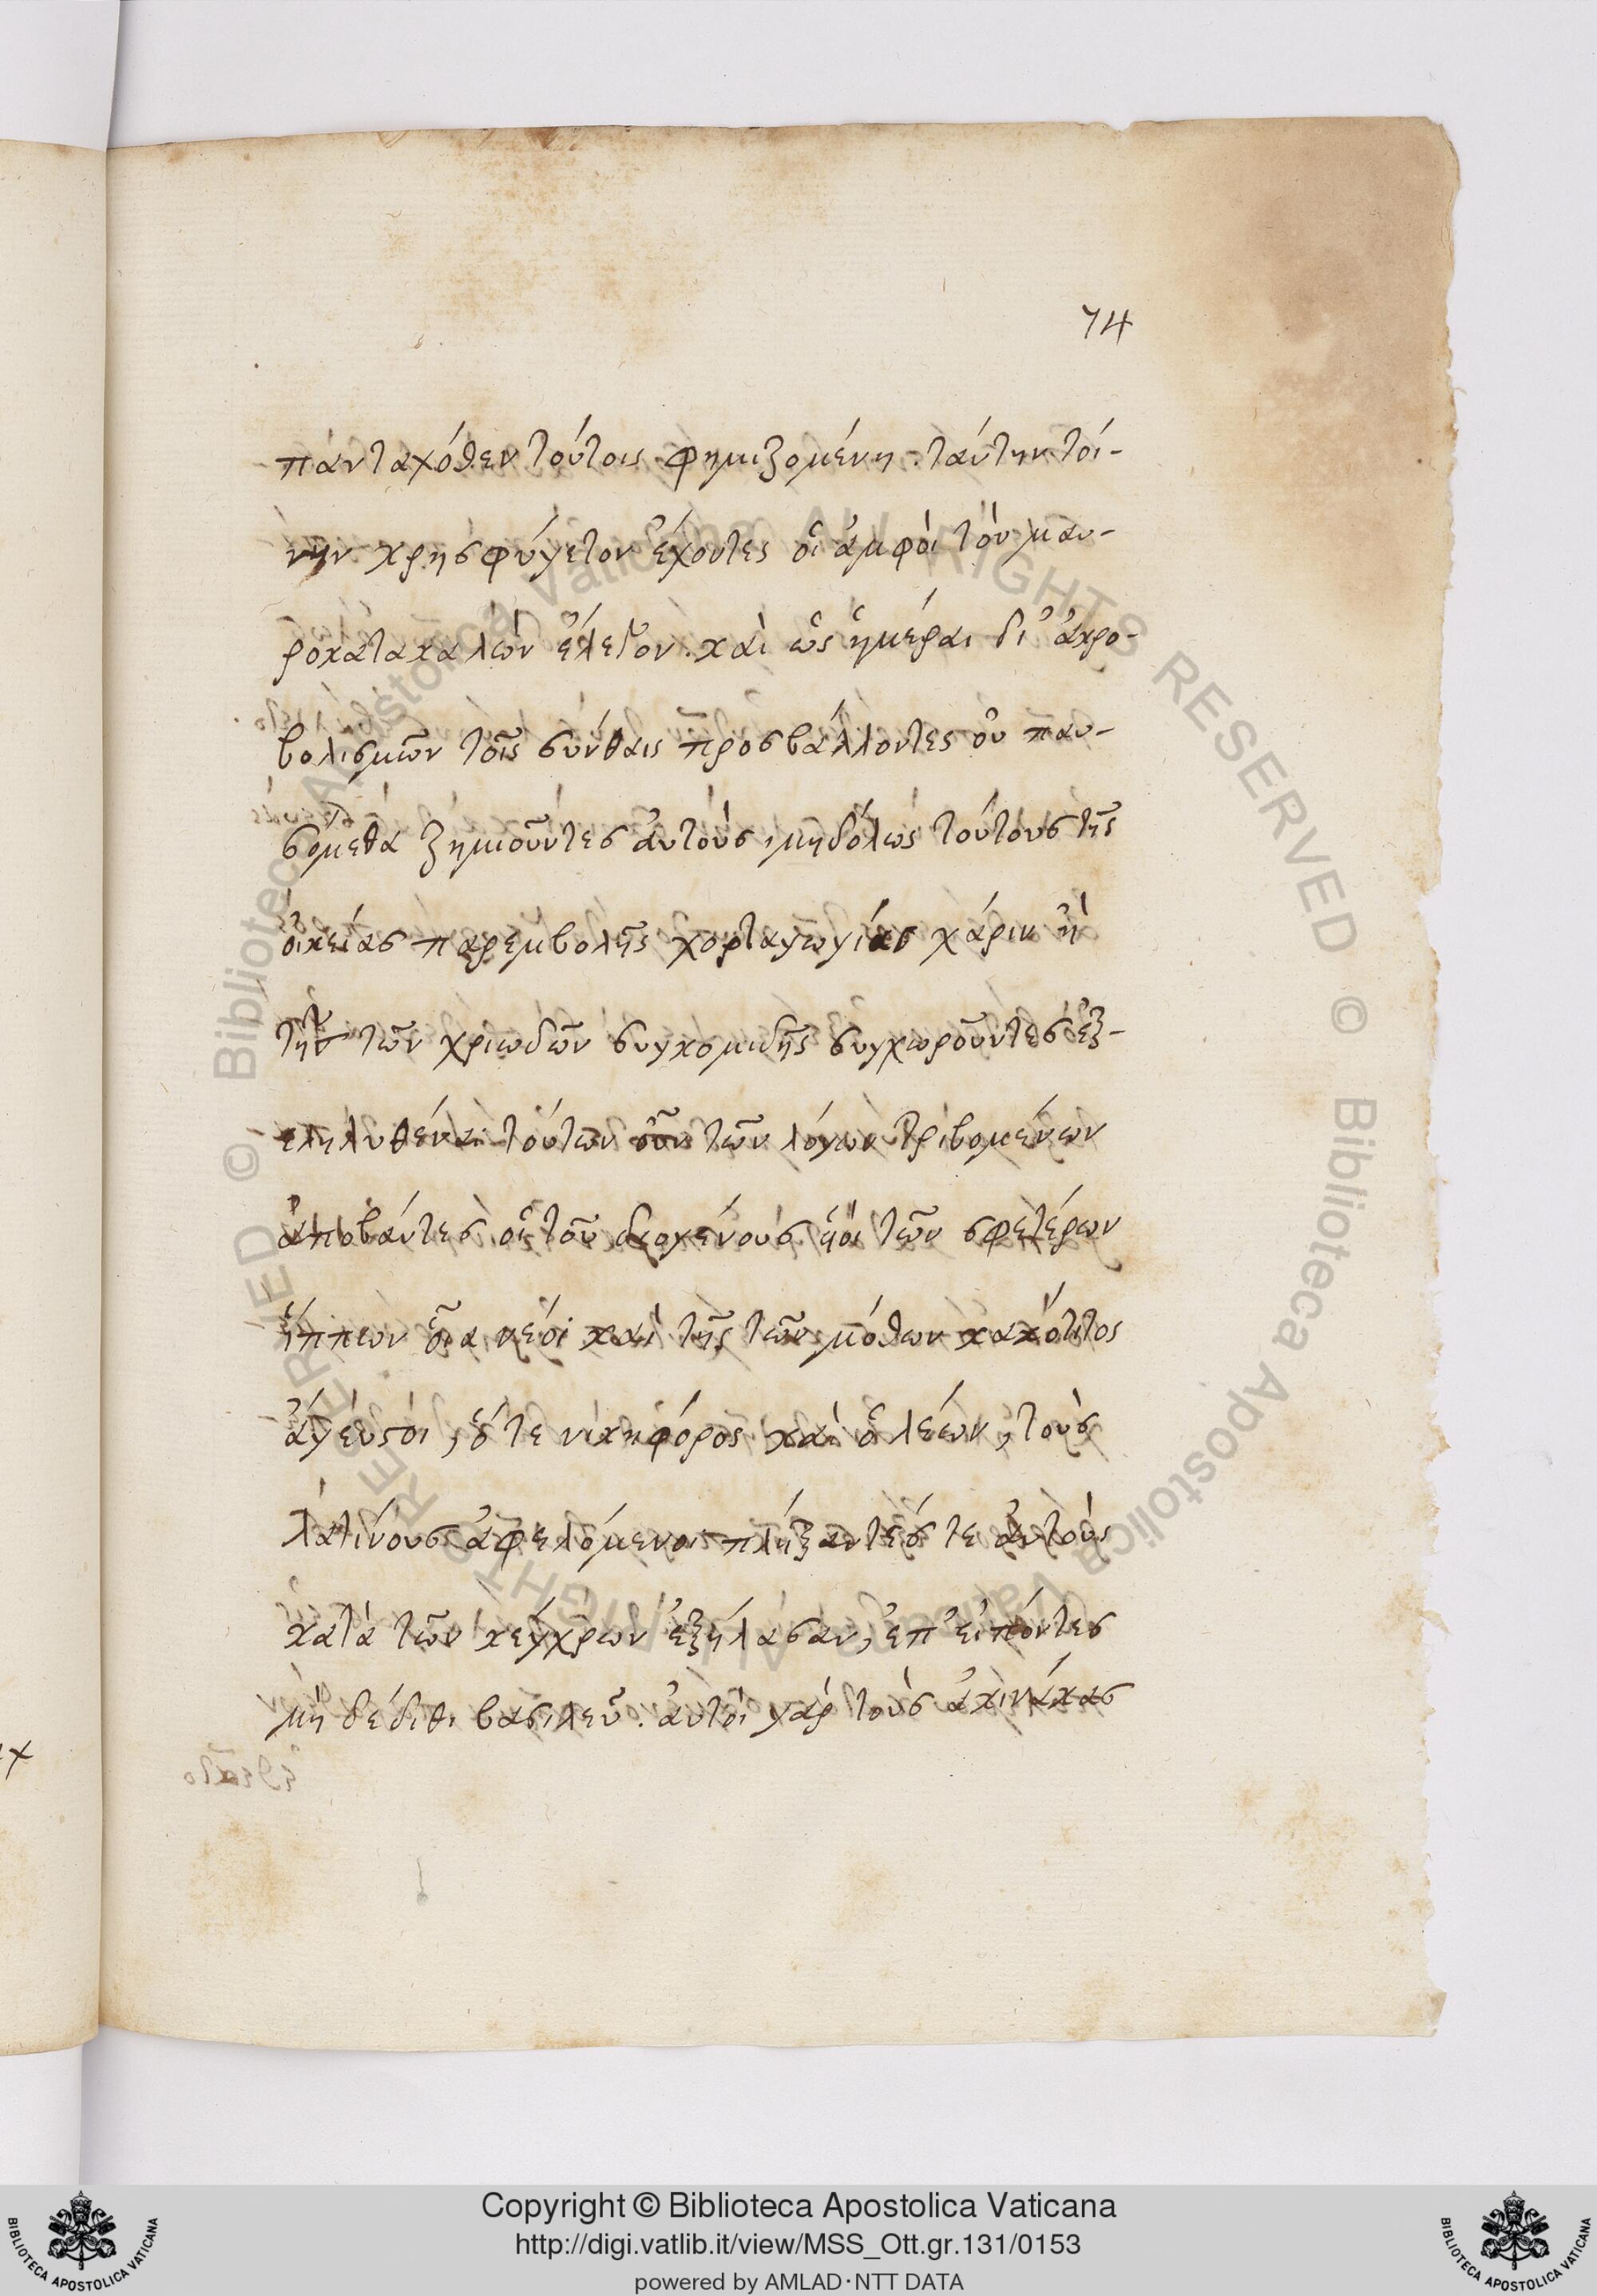 74
πανταχόθεν τούτοις φημιζομένη. ταύτην τοί-
νυν χρησφύγετον ἔχοντες οἱ ἀμφὶ τὸν μαυ-
ροκατακαλὼν ἔλεγον. καὶ ὡς ἡμέραι δι' ἀκρο-
βολισμῶν τοῖς σύνθαις προσβάλλοντες οὐ παυ-
σόμεθα ζημιοῦντες αὐτούς, μηδόλως τούτους τῆς
οἰκείας παρεμβολῆς χορταγωγίας χάριν ἢ
τῆς τῶν χριωδῶν συγκομιδῆς συγχωροῦντες ἐξ-
εληλυθέναι τούτων οὖν τῶν λόγων τριβομένων
ἀποβάντες οἱ τοῦ διογένους ἡοὶ τῶν σφετέρων
ἵππων οἷα νέοι καὶ τῆς τῶν μόθων κακότιτος
ἄγευστοι, ὅ τε νικηφόρος καὶ ὁ λέων, τοὺς
λατίνους ἀφελόμενοι πλήξαντές τε αὐτοὺς
κατὰ τῶν κέγχρων ἐξήλασαν, ἐπειπόντες
μὴ δέδιθι βασιλεῦ. αὐτοὶ γὰρ τοὺς ἀκινάκας
Copyright © Biblioteca Apostolica Vaticana
http://digi.vatlib.it/view/MSS_Ott.gr.131/0153
powered by AMLAD·NTT DATA
BIBLIOTECA APOSTOLICA VATICANA
BIBLIOTECA APOSTOLICA VATICANA